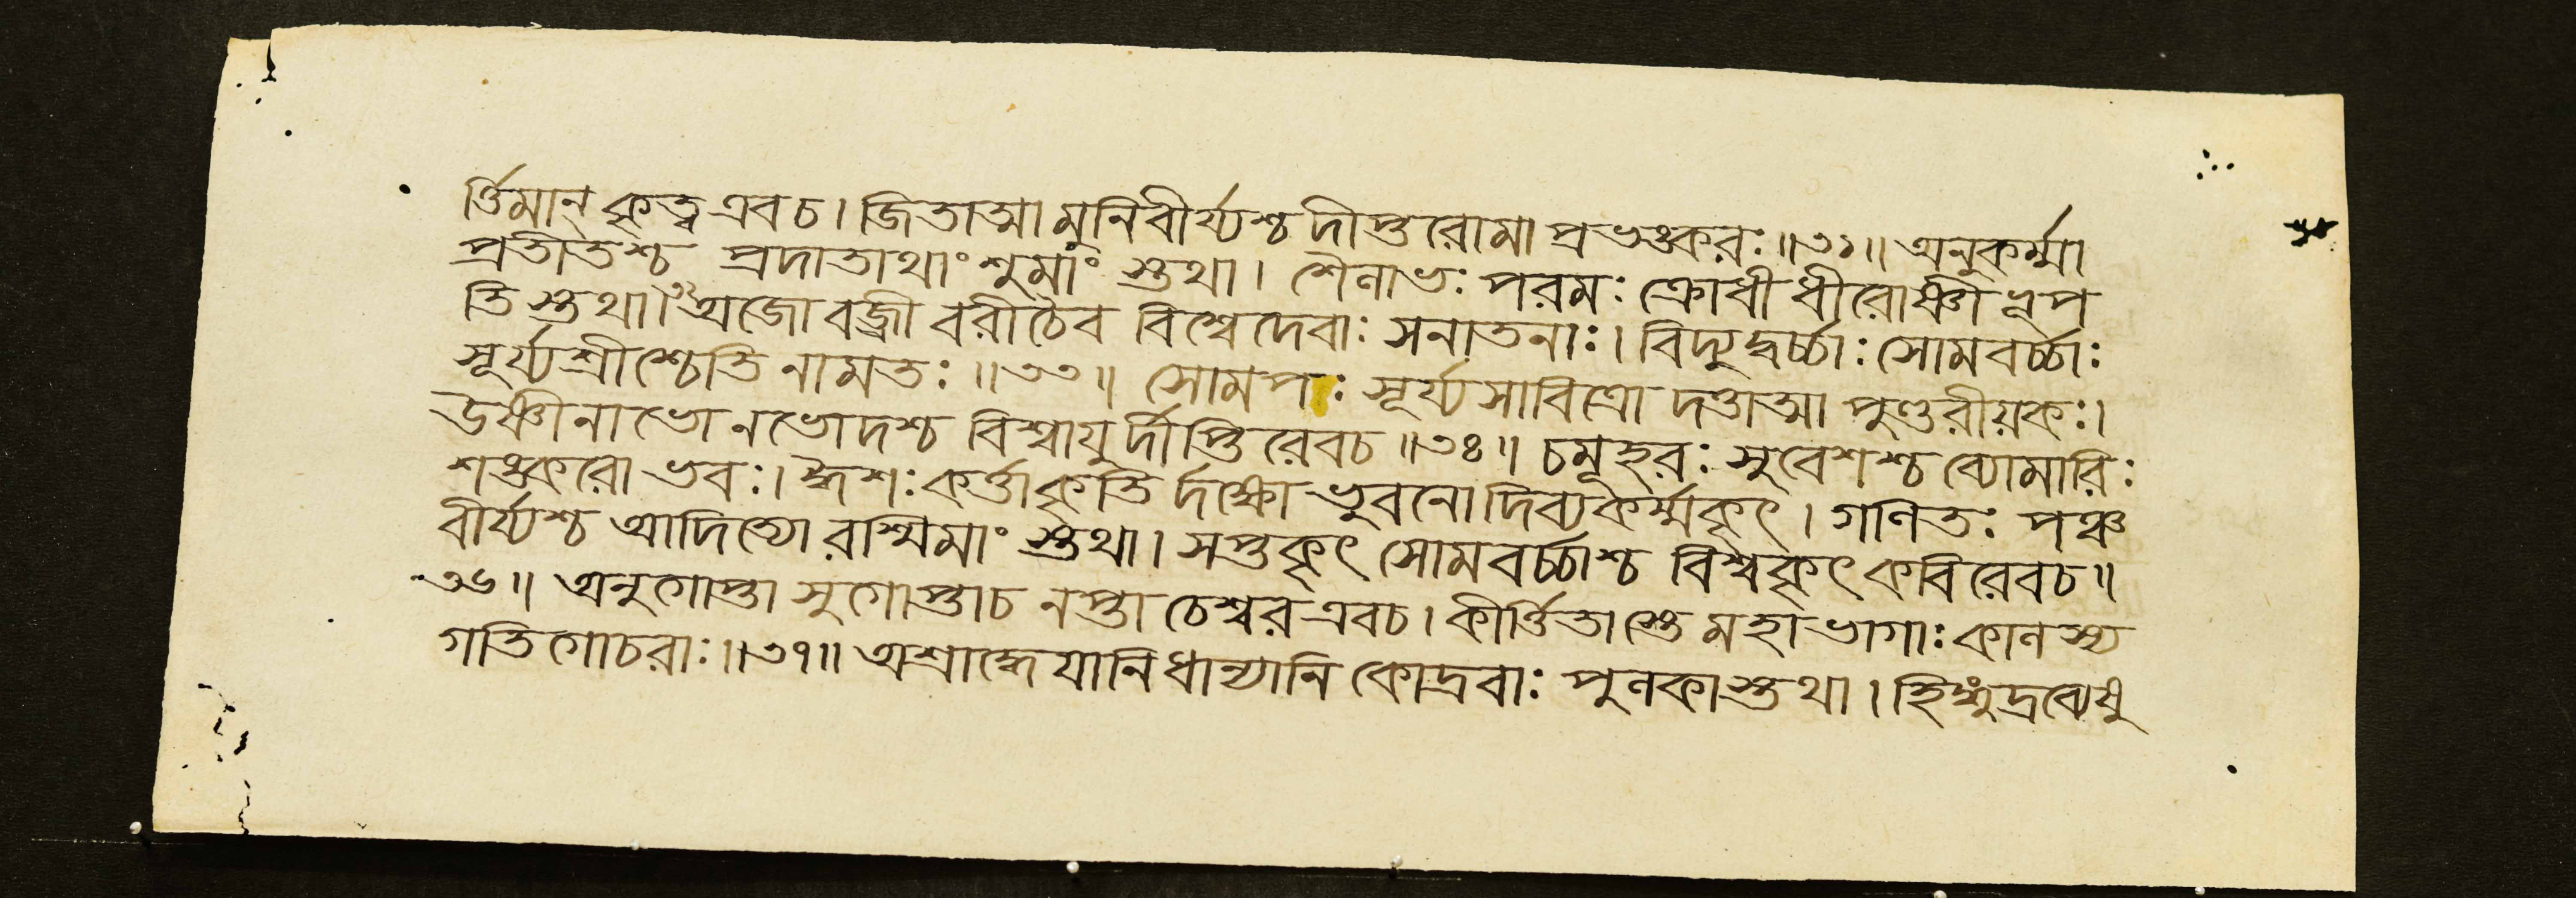 র্ত্তিমান্ কৃত্ব এবচ। জিতাত্মা মুনিবীর্য্যশ্চ দীপ্তরোমা প্রভঙ্করঃ॥৩১॥ অনুকর্ম্মা
প্রতীতশ্চ প্রদাতাথাংশুমাং স্তথা। শৈনাভঃ পরমঃ ক্রোধী ধীরোষ্ণী নৃপ
তি স্তথা। অজো বজ্রী বরীচৈব বিশ্বেদেবাঃ সনাতনাঃ। বিদ্যুদ্বর্চ্চাঃ সোমবর্চ্চাঃ
সূর্য্যশ্রীশ্চেতি নামতঃ॥৩৩॥ সোমপঃ সূর্য্যসাবিত্রো দত্তাত্মা পুণ্ডরীয়কঃ।
উষ্ণীনাভো নভোদশ্চ বিশ্বায়ুর্দীপ্তিরেবচ॥৩৪॥ চমূহরঃ সুবেশশ্চ ব্যোমারিঃ
শঙ্করো ভবঃ। ঈশঃ কর্ত্তাকৃতি র্দক্ষো ভুবনো দিব্যকর্ম্মকৃৎ। গণিতঃ পঞ্চ
বীর্য্যশ্চ আদিত্যো রশ্মিমাং স্তথা। সপ্তকৃৎ সোমবর্চ্চাশ্চ বিশ্বকৃৎ কবিরেবচ॥
৩৬॥ অনুগোপ্তা সুগোপ্তাচ নপ্তা চেশ্বর এবচ। কীর্ত্তিতাস্তে মহাভাগাঃ কানস্য
গতিগোচরাঃ॥৩৭॥ অশ্রাদ্ধেযানি ধান্যানি কোদ্রবাঃ পুনকাস্তথা। হিঙ্গুদ্রব্যেষু